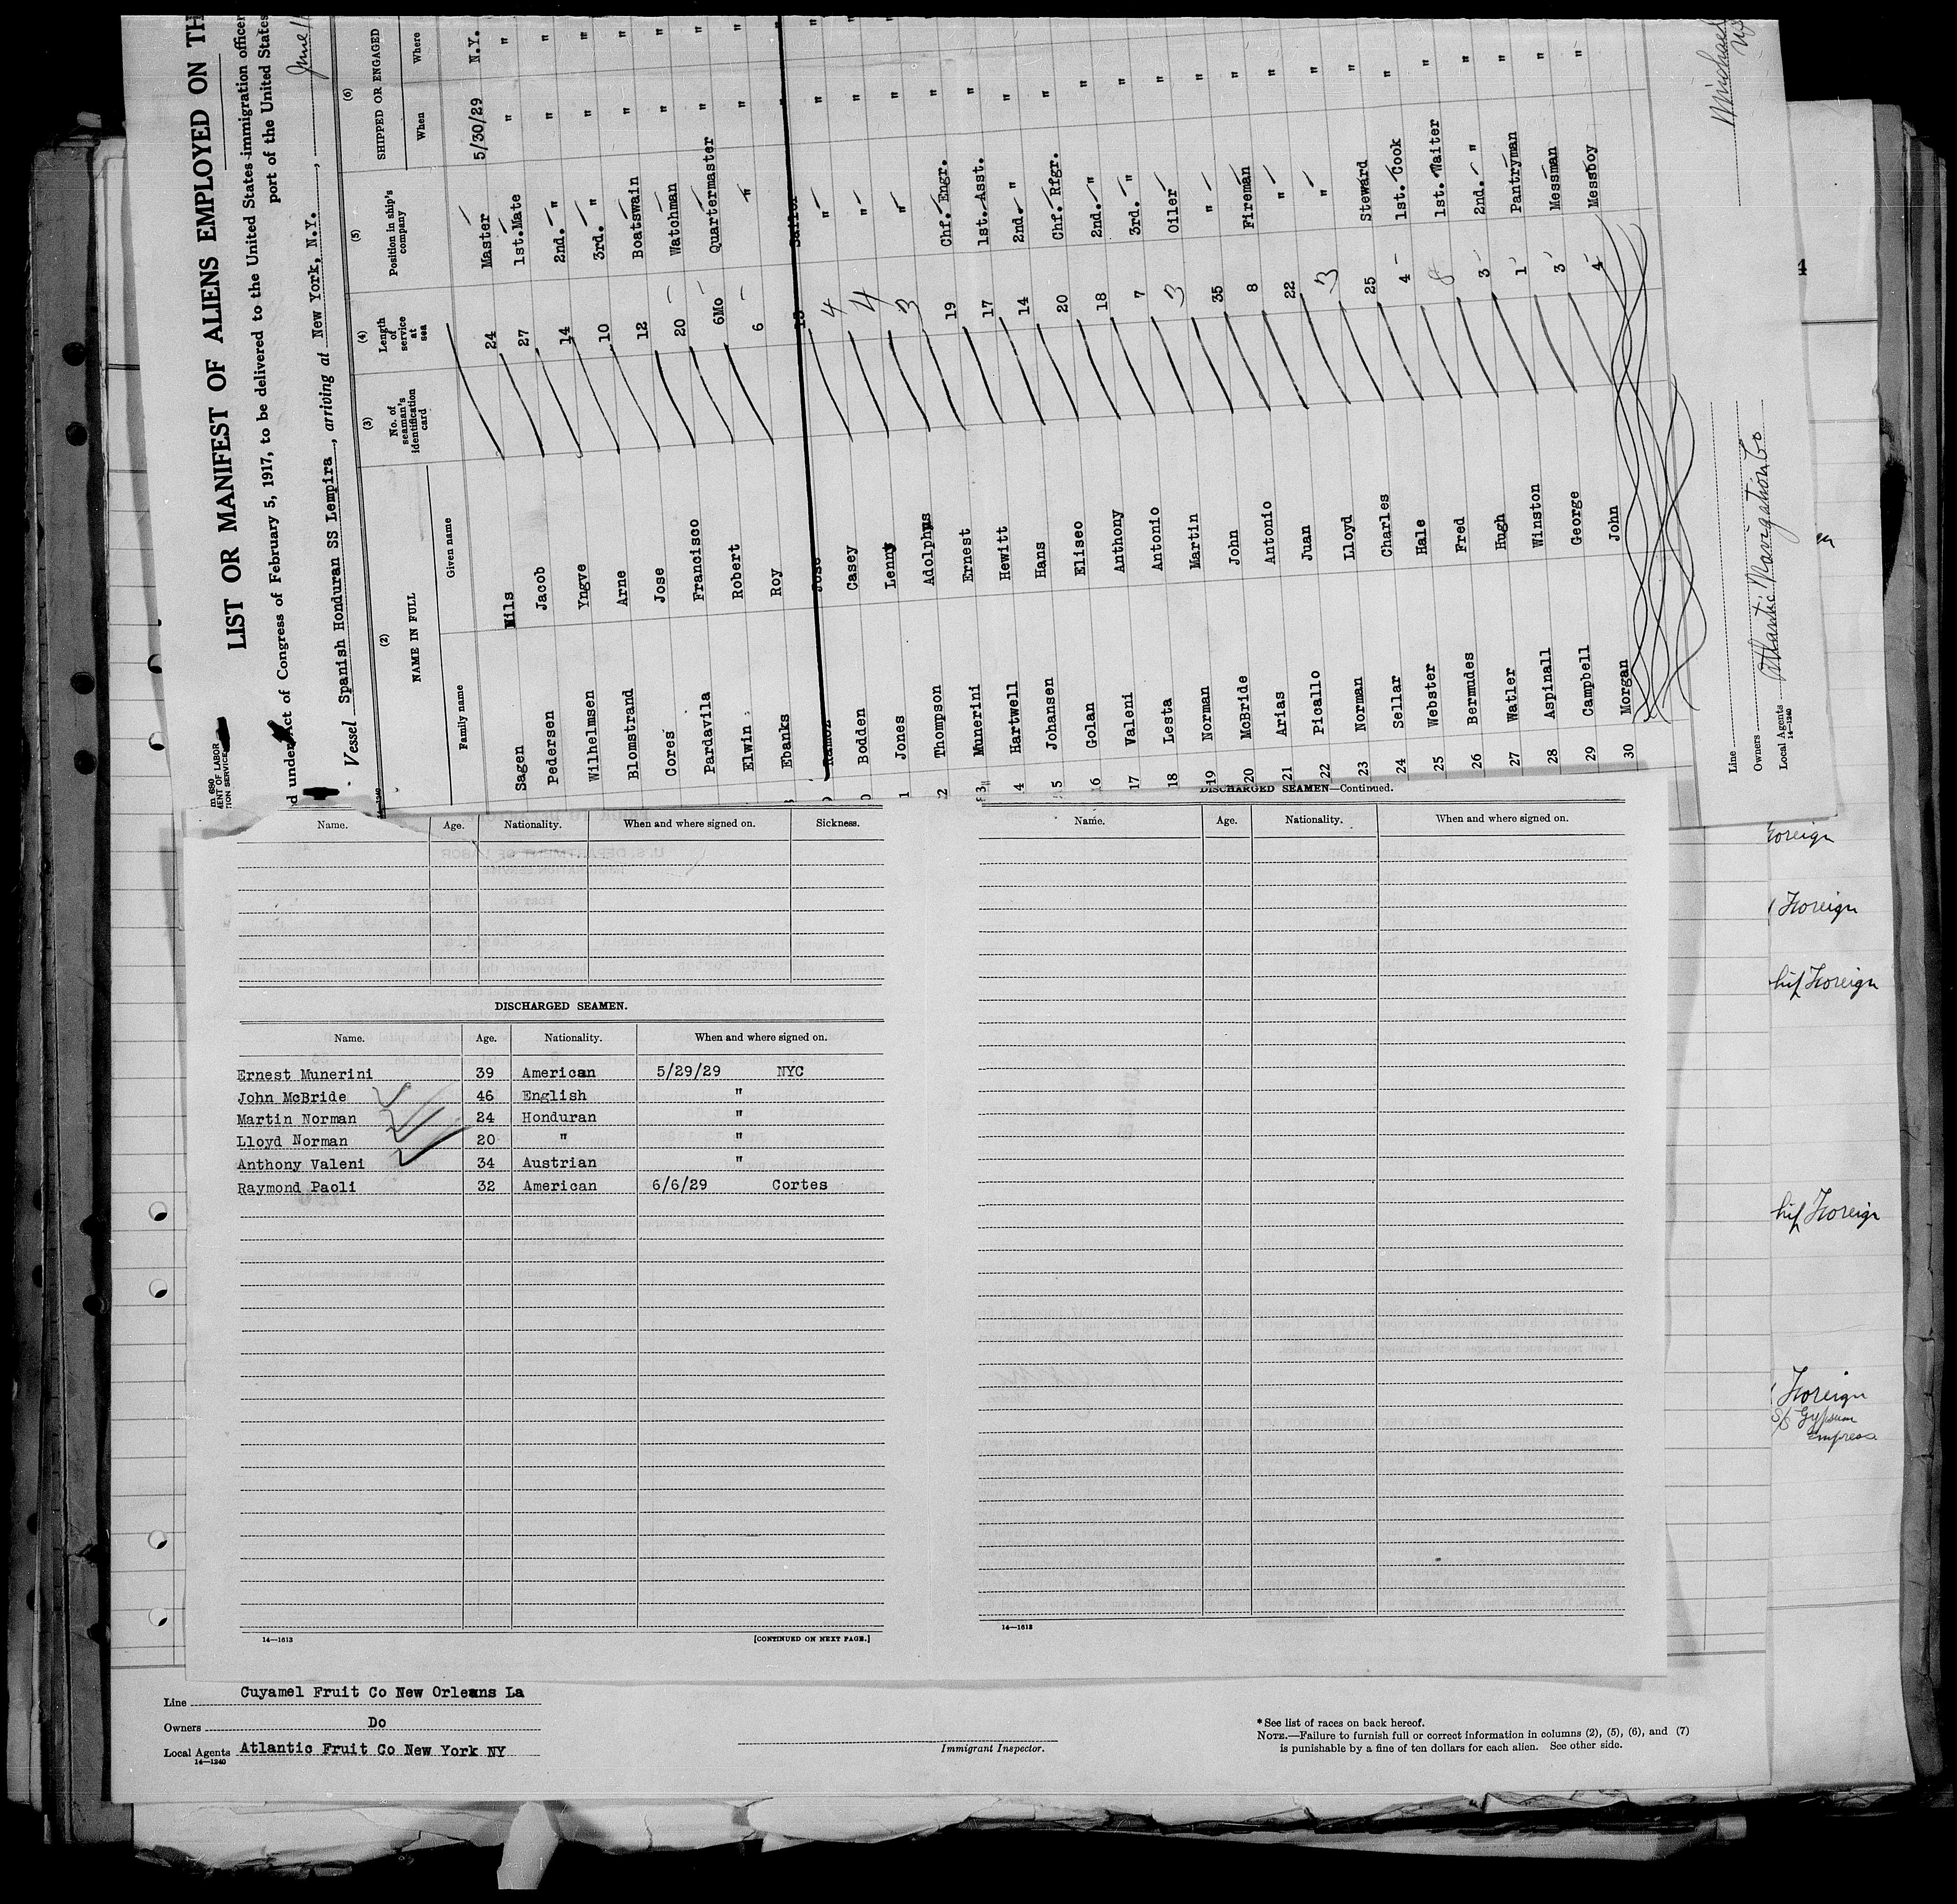 LIST OR MANIFEST OF ALIENS EMPLOYED ON TH
Act of Congress of February 5, 1917, to be delivered to the United States immigration officer
port of the United States
Vessel Spanish Honduran SS Lempira, arriving at New York, N.Y.,
(2) (3) (4) (5) (6)
NAME IN FULL
No. of seaman's identification card
Length of service at sea
Position in ship's company
SHIPPED OR ENGAGED
Family name Given name When Where
Sagen Nils 24 Master 5/30/29 N.Y.
Pedersen Jacob 27 1st.Mate " "
Wilhelmsen Yngve 14 2nd. " " "
Blomstrand Arne 10 3rd. " " "
Cores Jose 12 Boatswain " "
Pardavila Francisco 20 Watchman " "
Elwin Robert 6Mo Quartermaster " "
Ebanks Roy 6 " " "
Ramoz Jose Sailor
Bodden Casey 4 " " "
1 Jones Lenny 4 " " "
2 Thompson Adolphus 3 " " "
3 Munerini Ernest 19 Chf. Engr. " "
4 Hartwell Hewitt 17 1st. Asst. " "
5 Johansen Hans 14 2nd. " " "
6 Golan Eliseo 20 Chf. Rfgr. " "
17 Valeni Anthony 18 2nd. " " "
18 Lesta Antonio 7 3rd. " " "
19 Norman Martin 3 Oiler " "
20 McBride John 35 " " "
21 Arias Antonio 8 Fireman " "
22 Picallo Juan 22 " " "
23 Norman Lloyd 3 " " "
24 Sellar Charles 25 Steward " "
25 Webster Hale 4 1st. Cook " "
26 Bermudes Fred 8 1st. Waiter " "
27 Watler Hugh 3 2nd. " " "
28 Aspinall Winston 1 Pantryman " "
29 Campbell George 3 Messman " "
30 Morgan John 4 Messboy " "
Line
Owners
Local Agents Atlantic Navigation Co
14—1240
Name. Age. Nationality. When and where signed on. Sickness.
DISCHARGED SEAMEN.
Name. Age. Nationality. When and where signed on.
Ernest Munerini 39 American 5/29/29 NYC
John McBride 46 English "
Martin Norman 24 Honduran "
Lloyd Norman 20 " "
Anthony Valeni 34 Austrian "
Raymond Paoli 32 American 6/6/29 Cortes
14—1613
[CONTINUED ON NEXT PAGE.]
DISCHARGED SEAMEN—Continued.
Name. Age. Nationality. When and where signed on.
14—1613
Foreign
Foreign
Foreign
Foreign
Foreign
S/S Gypsum
Empress
Line Cuyamel Fruit Co New Orleans La
Owners Do
Local Agents Atlantic Fruit Co New York NY
14—1240
Immigrant Inspector.
* See list of races on back hereof.
NOTE.—Failure to furnish full or correct information in columns (2), (5), (6), and (7)
is punishable by a fine of ten dollars for each alien. See other side.